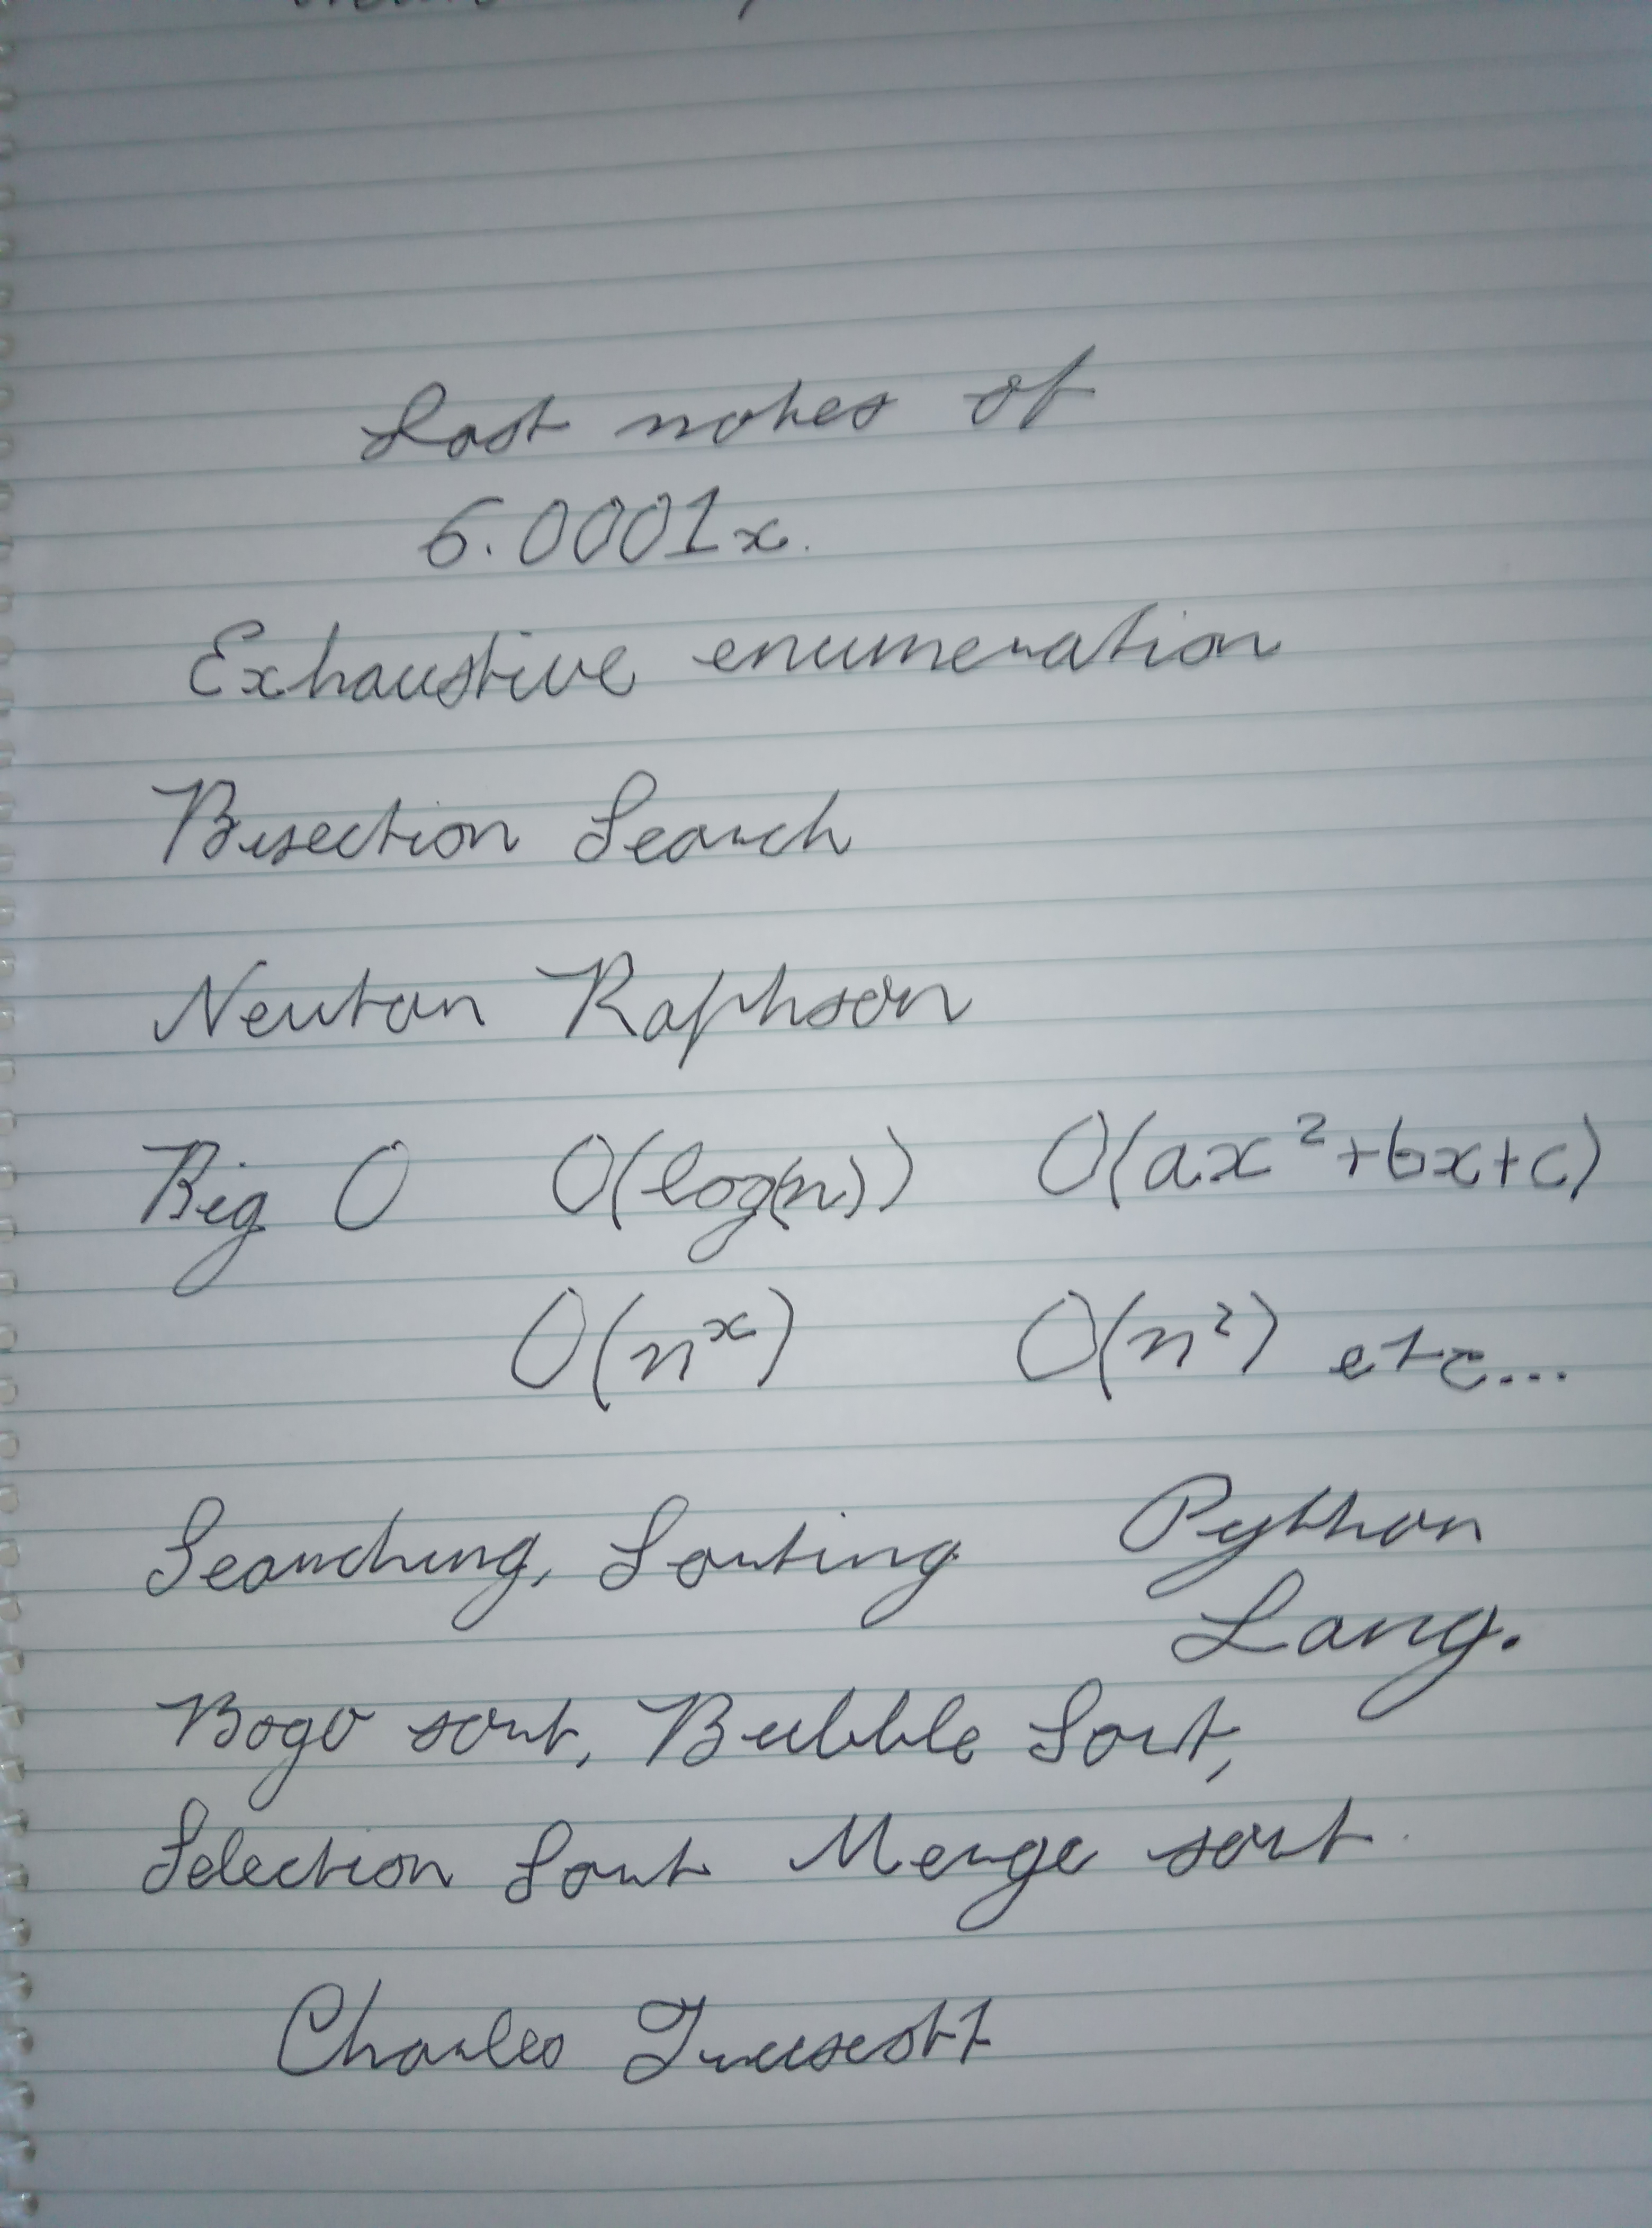 Last notes of
6.0001x.
Exhaustive enumeration
Bisection Search
Newton Raphson
Big O O(log(n)) O(ax²+bx+c)
O(nˣ) O(n²) etc...
Searching, Sorting Python
Lang.
Bogo sort, Bubble Sort,
Selection Sort Merge sort.
Charles Truscott